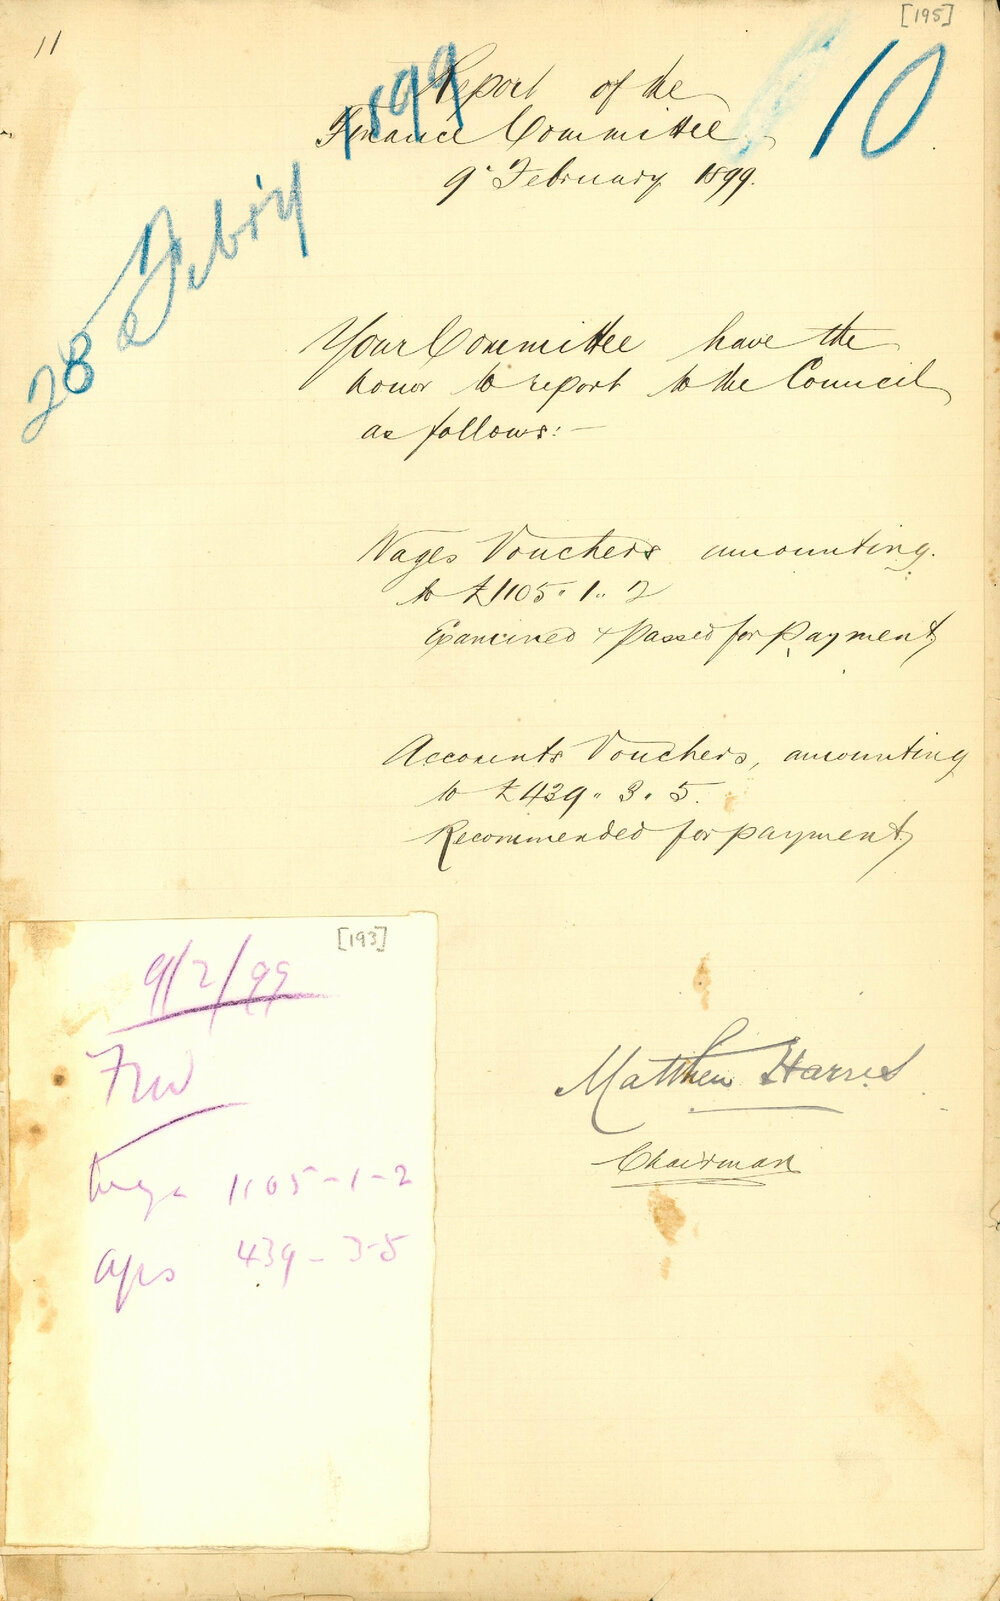 [195]
11
10
28 Feb'ry 1899
Report of the
Finance Committee
9th February 1899.
Your Committee have the
honor to report to the Council
as follows:—
Wages Vouchers amounting
to £1105.. 1.. 2
Examined & passed for payment
Accounts Vouchers, amounting
to £439.. 3. 5.
Recommended for payment
Matthew Harris
Chairman
[193]
9/2/99
Wages 1105-1-2
439-3-5